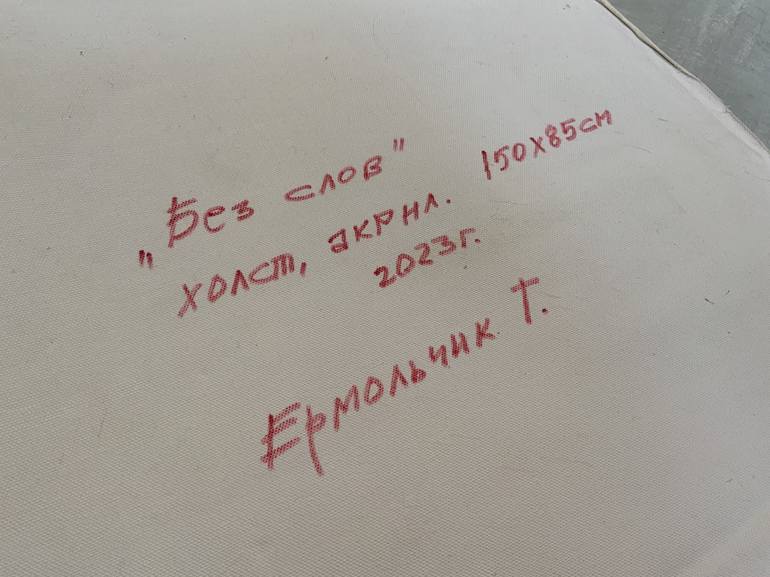 „Без слов"
холст, акрил. 150х85см
2023г.
Ермольчик Т.